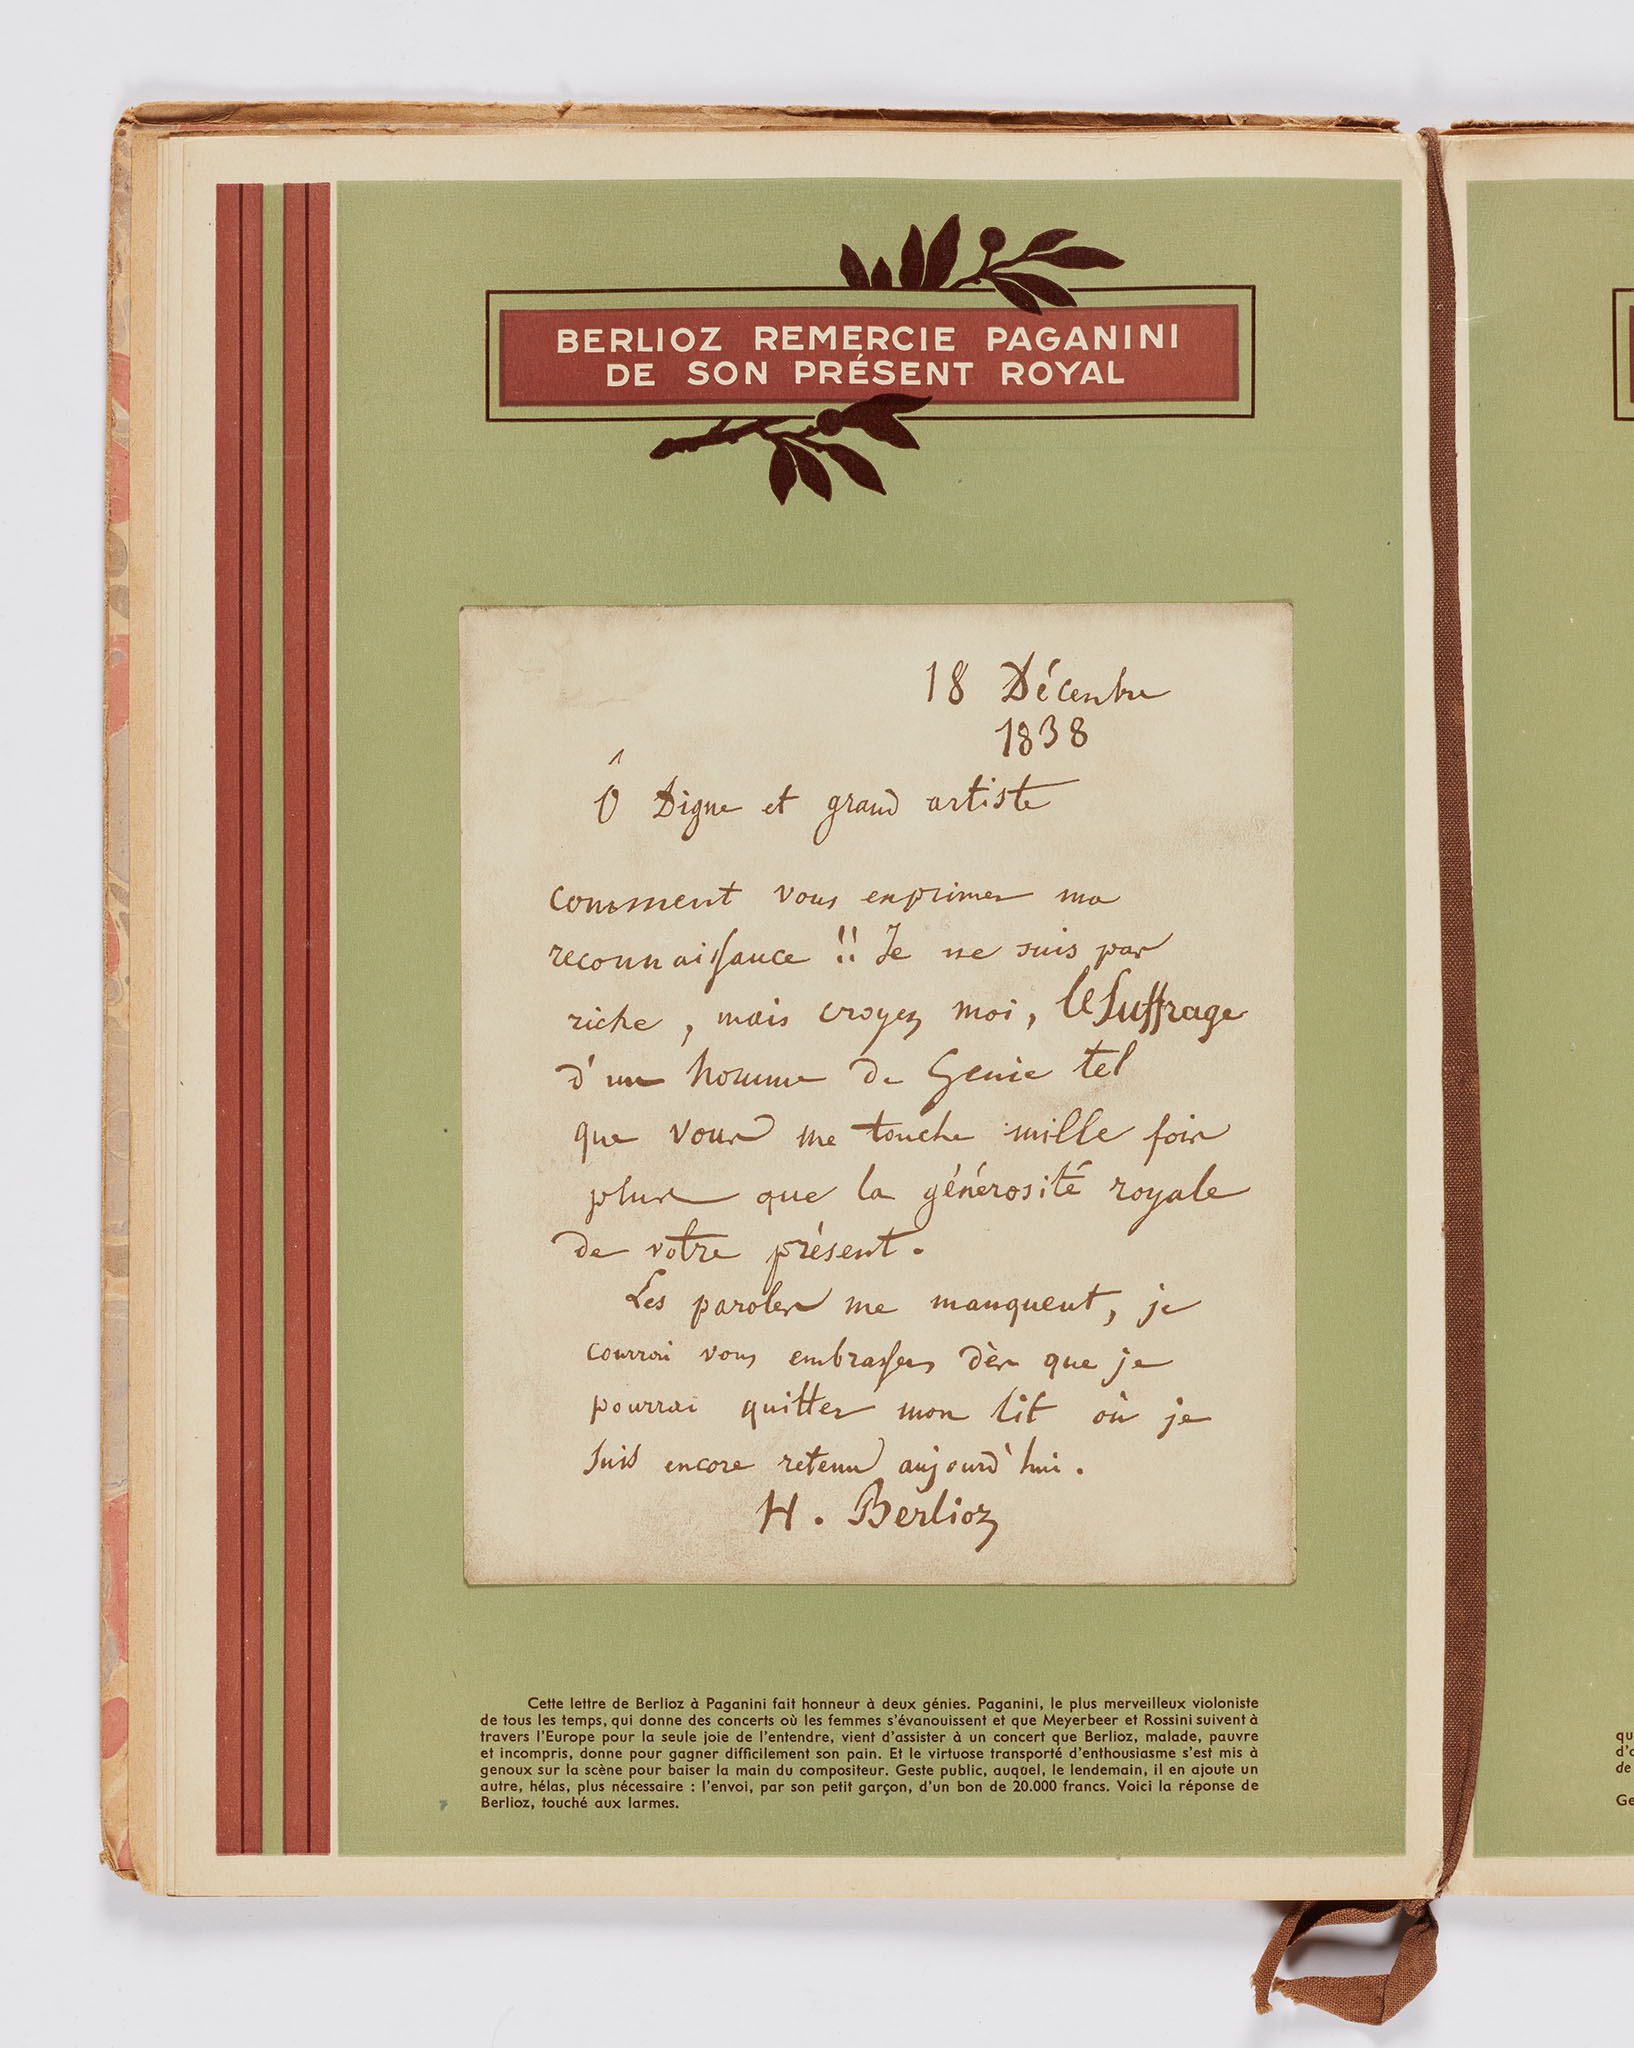 BERLIOZ REMERCIE PAGANINI
DE SON PRÉSENT ROYAL
18 Décembre
1838
Ô Digne et grand artiste
comment vous exprimer ma
reconnaissance !! Je ne suis pas
riche, mais croyez moi, le suffrage
d'un homme de Genie tel
que vous me touche mille fois
plus que la générosité royale
de votre présent.
Les paroles me manquent, je
courrai vous embrasser dès que je
pourrai quitter mon lit où je
suis encore retenu aujourd'hui.
H. Berlioz
Cette lettre de Berlioz à Paganini fait honneur à deux génies. Paganini, le plus merveilleux violoniste
de tous les temps, qui donne des concerts où les femmes s'évanouissent et que Meyerbeer et Rossini suivent à
travers l'Europe pour la seule joie de l'entendre, vient d'assister à un concert que Berlioz, malade, pauvre
et incompris, donne pour gagner difficilement son pain. Et le virtuose transporté d'enthousiasme s'est mis à
genoux sur la scène pour baiser la main du compositeur. Geste public, auquel, le lendemain, il en ajoute un
autre, hélas, plus nécessaire : l'envoi, par son petit garçon, d'un bon de 20.000 francs. Voici la réponse de
Berlioz, touché aux larmes.
qu
de
Ge